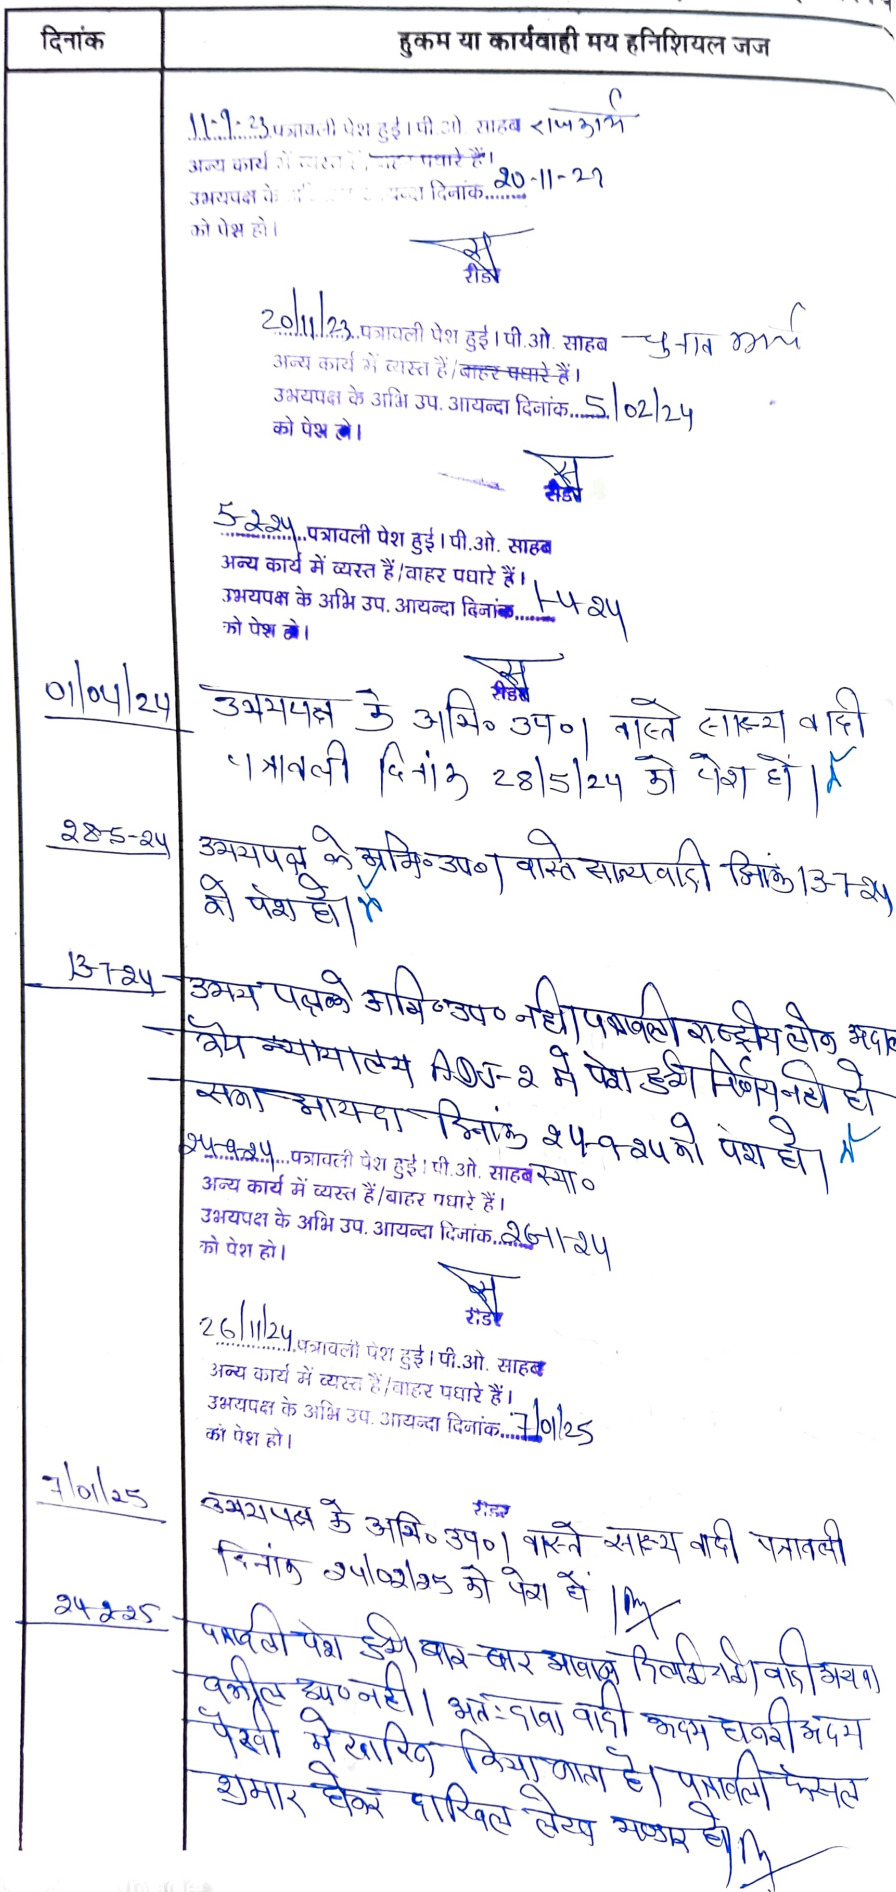 दिनांक
हुकम या कार्यवाही मय हनिशियल जज
11-9-23 पत्रावली पेश हुई। पी.ओ. साहब राजकार्य
अन्य कार्य में व्यस्त हैं/बाहर पधारे हैं।
उभयपक्ष के दिनांक.......20-11-23
को पेश हो।
रीडर
20/11/23 पत्रावली पेश हुई। पी.ओ. साहब चुनाव कार्य
अन्य कार्य में व्यस्त हैं/बाहर पधारे हैं।
उभयपक्ष के अभि उप. आयन्दा दिनांक......5/02/24
को पेश हो।
रीडर
5-2-24 पत्रावली पेश हुई। पी.ओ. साहब
अन्य कार्य में व्यस्त हैं/बाहर पधारे हैं।
उभयपक्ष के अभि उप. आयन्दा दिनांक.......1-4-24
को पेश हो।
रीडर
01/04/24 उभयपक्ष के अभि० उप०। वास्ते साक्ष्य वादी
पत्रावली दिनांक 28/5/24 को पेश हों।
28-5-24 उभयपक्ष के अभि० उप०। वास्ते साक्ष्य वादी दिनांक 13-7-24
को पेश हो।
13-7-24 उभय पक्ष के अभि० उप० नही। पत्रावली राष्ट्रीय लोक अदाल
न्यायालय ADJ-2 में पेश हुई। निर्णय नही हो
सका आयन्दा दिनांक 24-9-24 को पेश हो।
24-9-24 पत्रावली पेश हुई। पी.ओ. साहब स्था०
अन्य कार्य में व्यस्त हैं/बाहर पधारे हैं।
उभयपक्ष के अभि उप. आयन्दा दिनांक.......26-11-24
को पेश हो।
रीडर
26/11/24 पत्रावली पेश हुई। पी.ओ. साहब
अन्य कार्य में व्यस्त हैं/बाहर पधारे हैं।
उभयपक्ष के अभि उप. आयन्दा दिनांक.......7/01/25
को पेश हो।
रीडर
7/01/25 उभयपक्ष के अभि० उप०। वास्ते साक्ष्य वादी पत्रावली
दिनांक 24/02/25 को पेश हों।
24-2-25 पत्रावली पेश हुई। बार-बार आवाज दिलाई गई। वादी अथवा
वकील उप० नही। अतः दावा वादी अदम हाजरी अदम
पैरवी में खारिज किया जाता है। पत्रावली फैसल
शुमार होकर दाखिल लेख भण्डार हो।